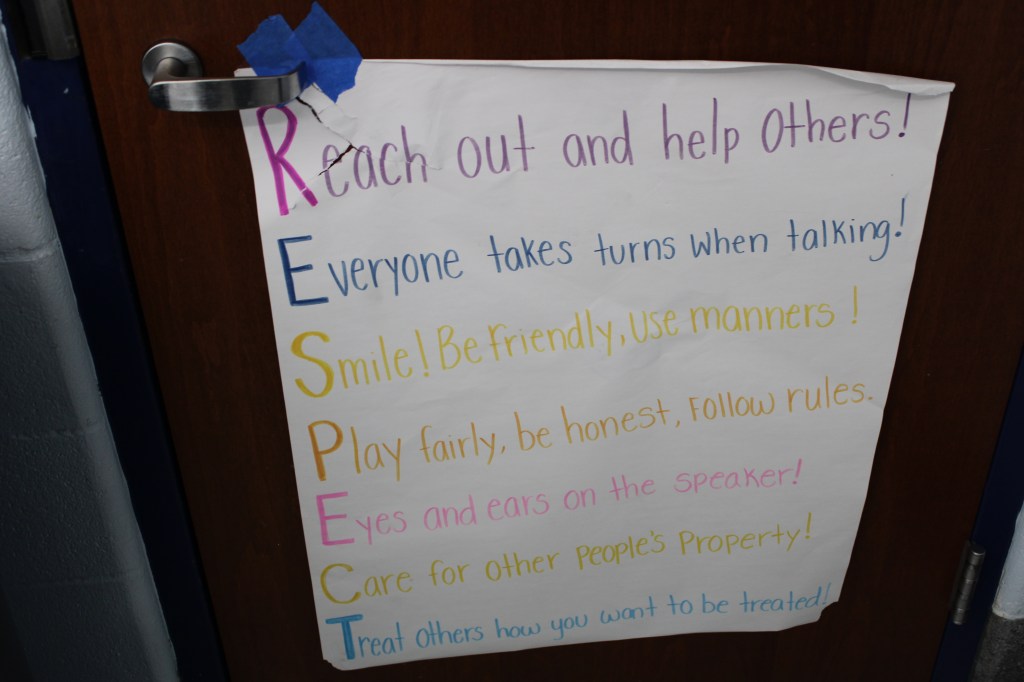 Reach out and help Others!
Everyone takes turns when talking!
Smile! Be Friendly, Use manners!
Play fairly, be honest, Follow rules.
Eyes and ears on the speaker!
Care for other people's Property!
Treat others how you want to be treated!